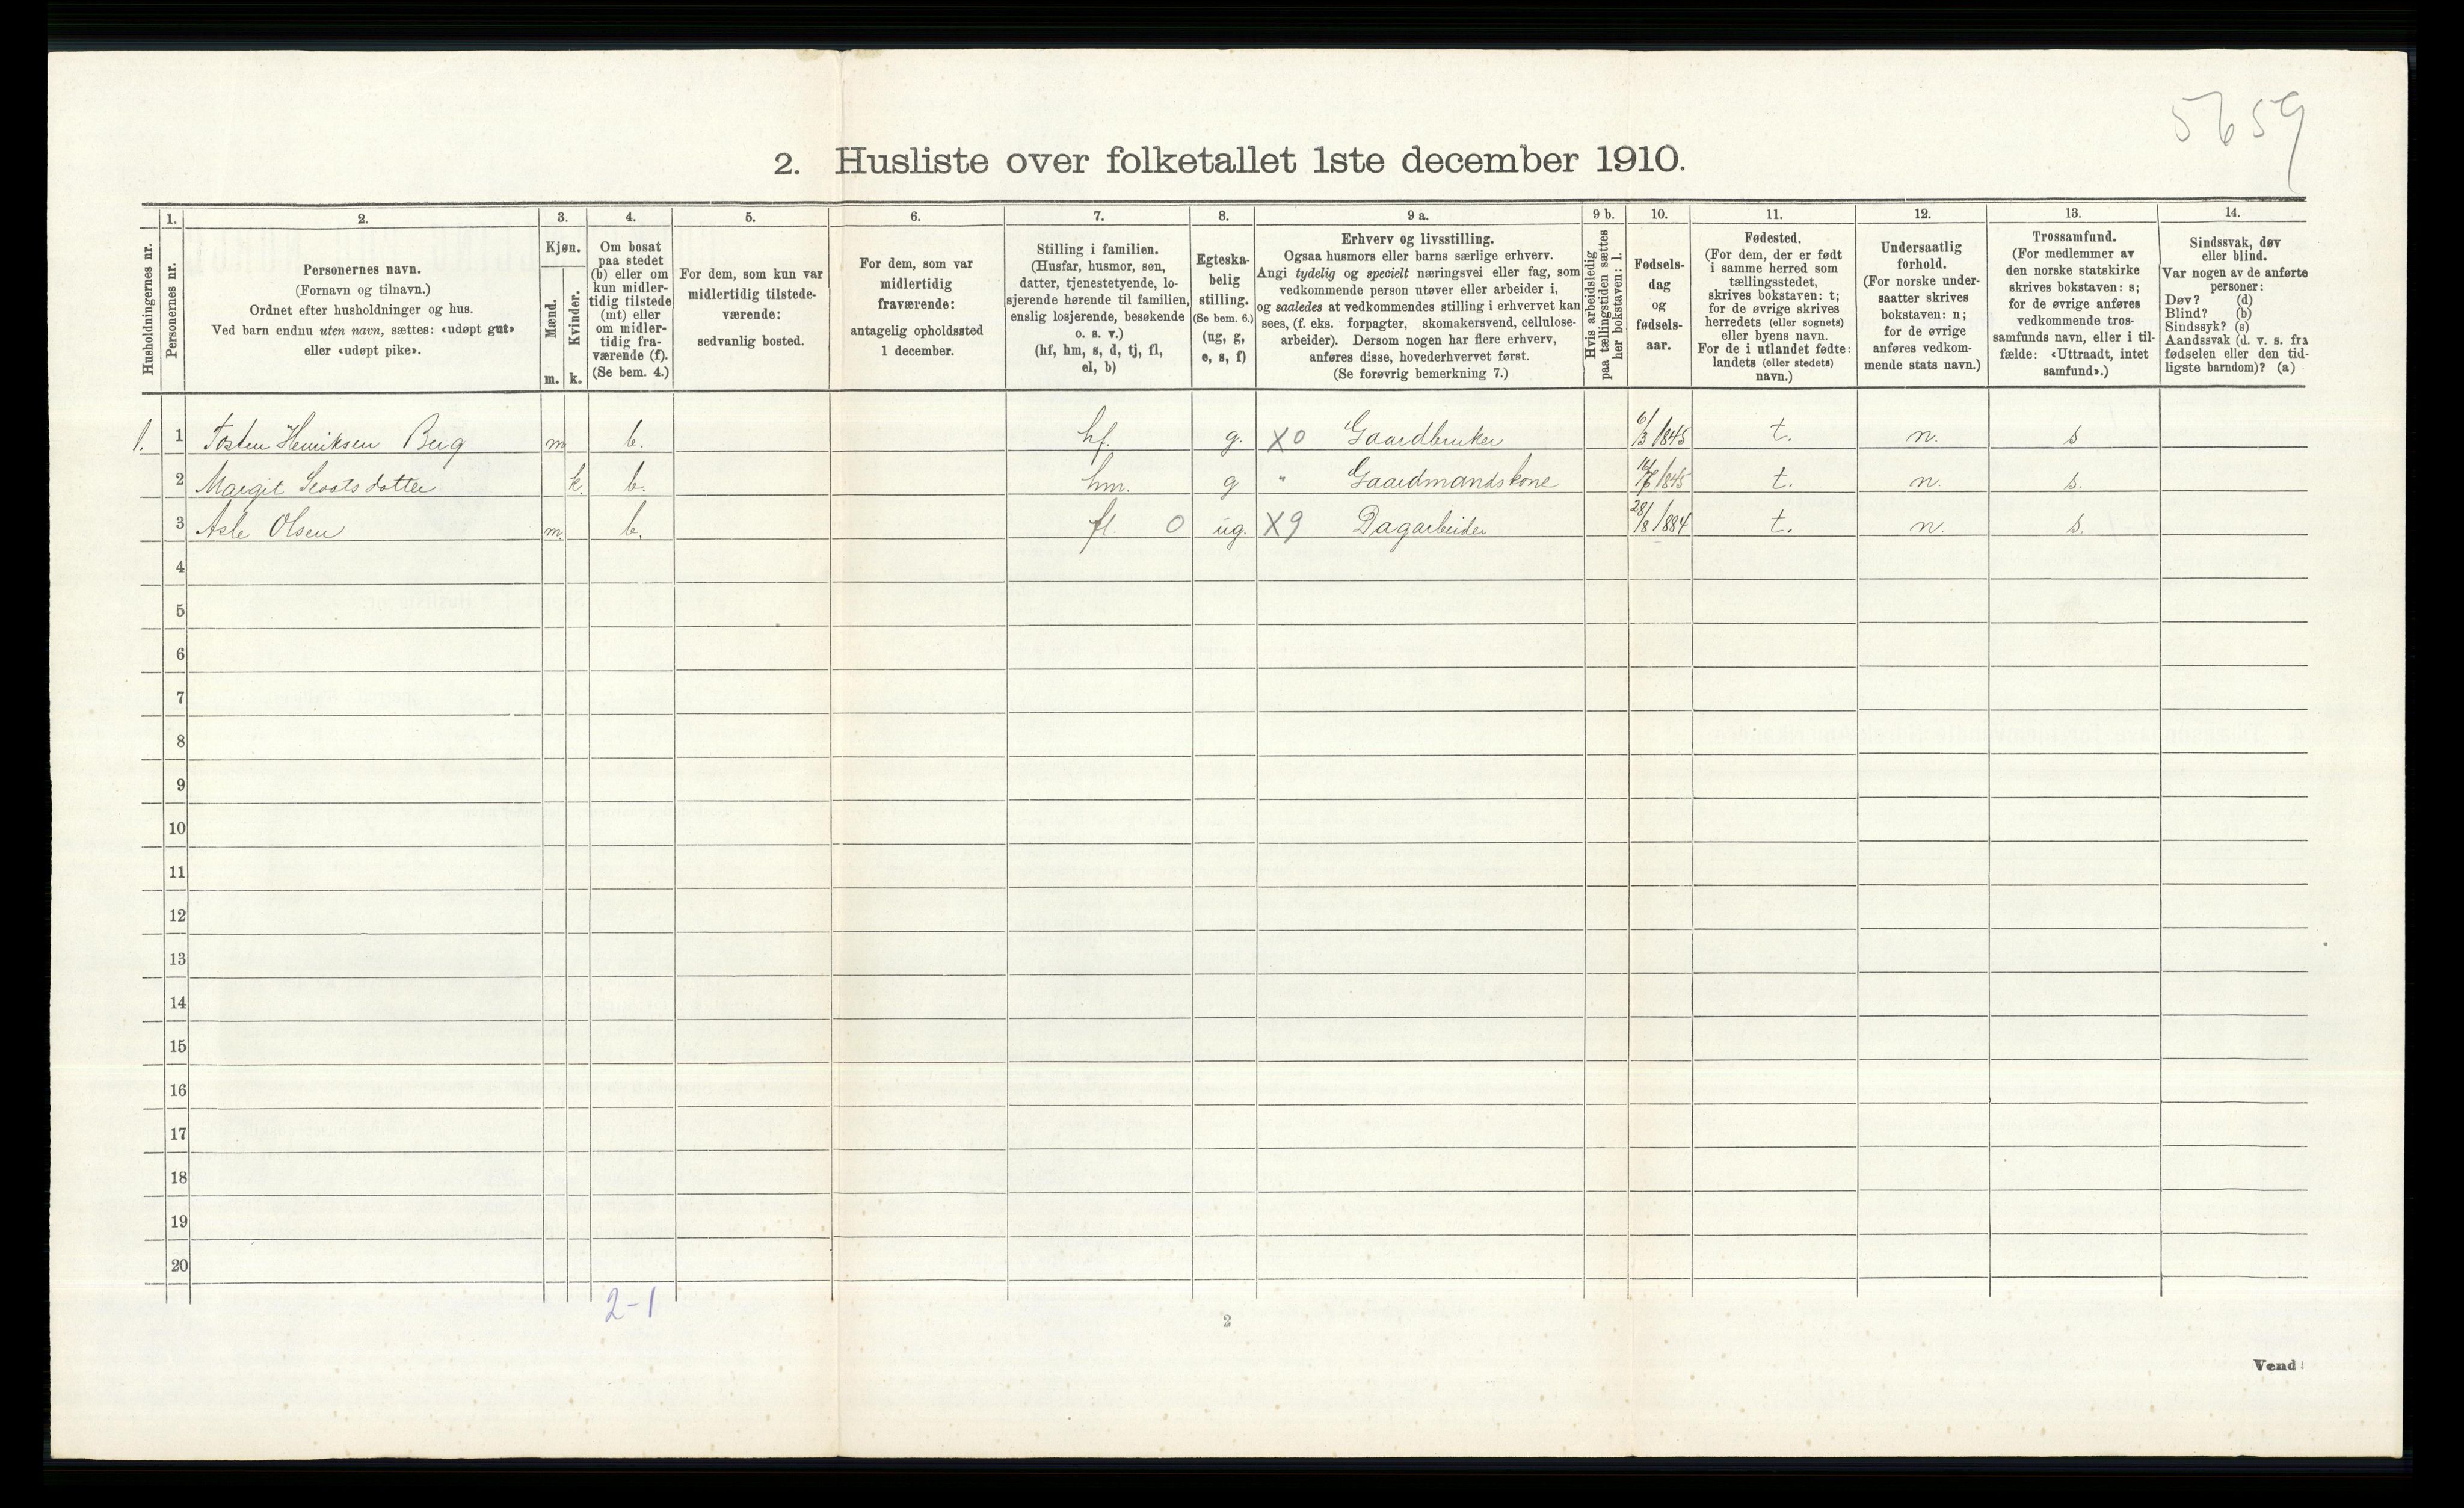 5659
2. Husliste over folketallet 1ste december 1910.
Husholdningernes nr.
1.
Personernes nr.
2.
Personernes navn.
(Fornavn og tilnavn.)
Ordnet efter husholdninger og hus.
Ved barn endnu uten navn, sættes: «udøpt gut»
eller «udøpt pike».
3.
Kjøn.
Mænd.
Kvinder.
m. k.
4.
Om bosat
paa stedet
(b) eller om
kun midler-
tidig tilstede
(mt) eller
om midler-
tidig fra-
værende (f).
(Se bem. 4.)
5.
For dem, som kun var
midlertidig tilstede-
værende:
sedvanlig bosted.
6.
For dem, som var
midlertidig
fraværende:
antagelig opholdssted
1 december.
7.
Stilling i familien.
(Husfar, husmor, søn,
datter, tjenestetyende, lo-
sjerende hørende til familien,
enslig losjerende, besøkende
o. s. v.)
(hf, hm, s, d, tj, fl,
el, b)
8.
Egteska-
belig
stilling.
(Se bem. 6.)
(ug, g,
e, s, f)
9 a.
Erhverv og livsstilling.
Ogsaa husmors eller barns særlige erhverv.
Angi tydelig og specielt næringsvei eller fag, som
vedkommende person utøver eller arbeider i,
og saaledes at vedkommendes stilling i erhvervet kan
sees, (f. eks. forpagter, skomakersvend, cellulose-
arbeider). Dersom nogen har flere erhverv,
anføres disse, hovederhvervet først.
(Se forøvrig bemerkning 7.)
9 b.
Hvis arbeidsledig
paa tællingstiden sættes
her bokstaven: l.
10.
Fødsels-
dag
og
fødsels-
aar.
11.
Fødested.
(For dem, der er født
i samme herred som
tællingsstedet,
skrives bokstaven: t;
for de øvrige skrives
herredets (eller sognets)
eller byens navn.
For de i utlandet fødte:
landets (eller stedets)
navn.)
12.
Undersaatlig
forhold.
(For norske under-
saatter skrives
bokstaven: n;
for de øvrige
anføres vedkom-
mende stats navn.)
13.
Trossamfund.
(For medlemmer av
den norske statskirke
skrives bokstaven: s;
for de øvrige anføres
vedkommende tros-
samfunds navn, eller i til-
fælde: «Uttraadt, intet
samfund».)
14.
Sindssvak, døv
eller blind.
Var nogen av de anførte
personer:
Døv? (d)
Blind? (b)
Sindssyk? (s)
Aandssvak (d. v. s. fra
fødselen eller den tid-
ligste barndom)? (a)
1. 1 Tosten Henriksen Berg m b. hf. g. X0 Gaardbruker 6/3 1845 t. n. s
2 Margit k. b. hm. g " Gaardmandskone 1845 t. n. s.
3 Asle Olsen m. b. fl. 0 ug. X9 Dagarbeider 28/8 1884 t. n. s.
4
5
6
7
8
9
10
11
12
13
14
15
16
17
18
19
20
2-1
2
Vend!